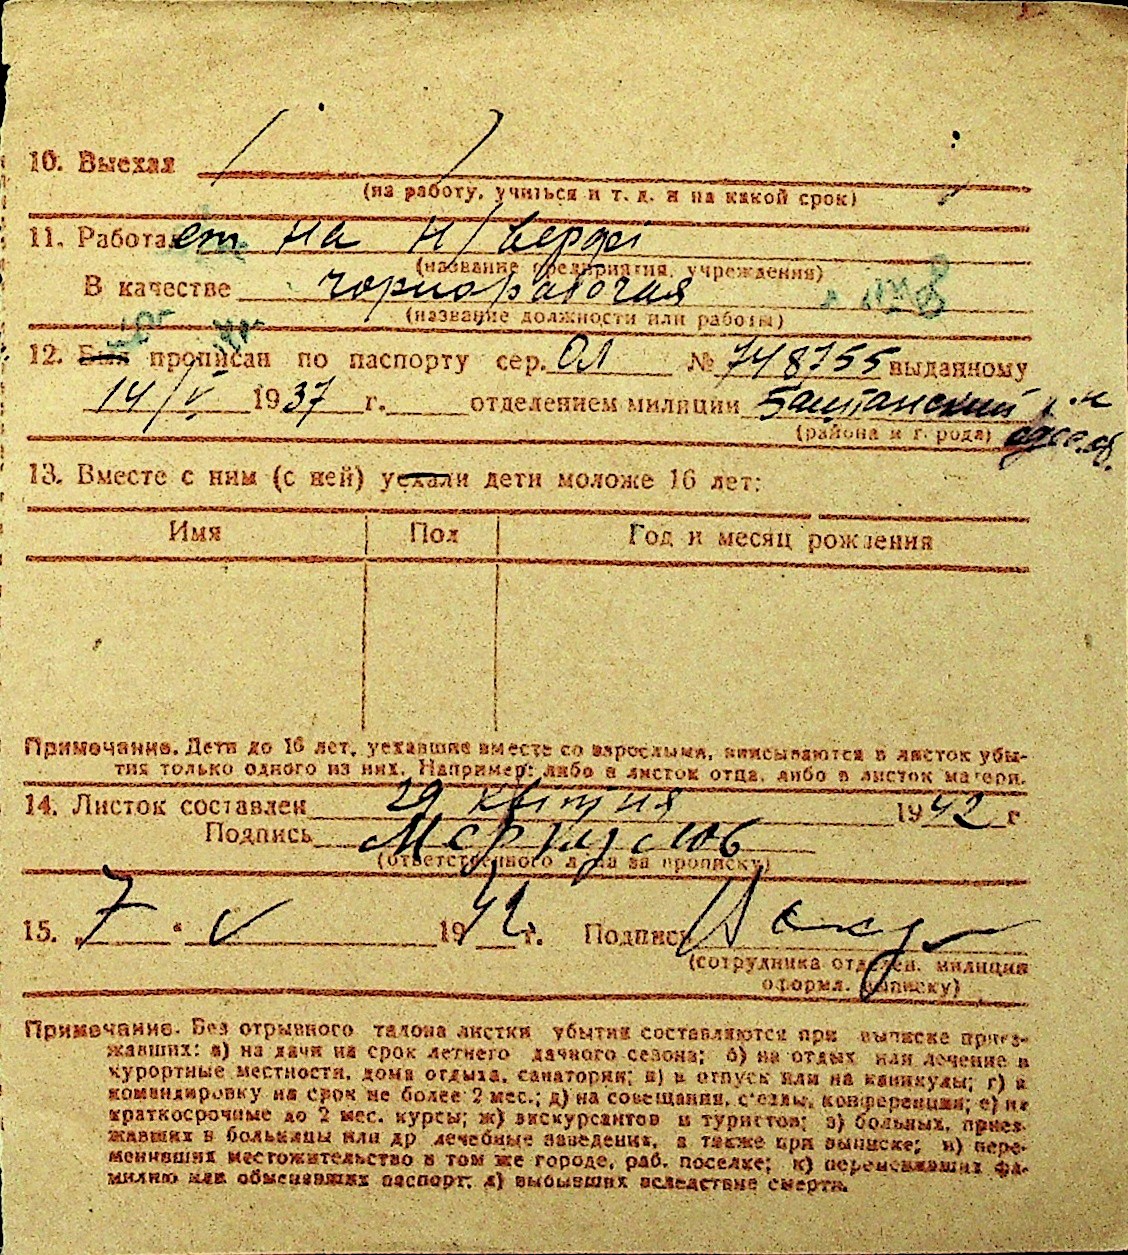 10. Выехал
(на работу, учиться и т. д. и на какой срок)
11. Работает на н/верфі
(название предприятия, учреждения)
В качестве чорнорабочая
(название должности или работы)
12. Был прописан по паспорту сер. ОЛ № 748755 выданному
14/V 1937 г. отделением милиции Баштанский р-н
(района и города) одес. об.
13. Вместе с ним (с ней) уехали дети моложе 16 лет:
Имя Пол Год и месяц рождения
Примечание. Дети до 16 лет, уехавшие вместе со взрослыми, вписываются в листок убы-
тия только одного из них. Например: либо в листок отца, либо в листок матери.
14. Листок составлен 29 квітня 1942 г
Подпись Меркулов
(ответственного лица за прописку)
15. „7“ V 1942 г. Подпись
(сотрудника отделен. милиции
оформ. выписку)
Примечание. Без отрывного талона листки убытия составляются при выписке приез-
жавших: а) на дачи на срок летнего дачного сезона; б) на отдых или лечение в
курортные местности, дома отдыха, санатории; в) в отпуск или на каникулы; г) в
командировку на срок не более 2 мес.; д) на совещания, съезды, конференции; е) на
краткосрочные до 2 мес. курсы; ж) экскурсантов и туристов; з) больных, приез-
жавших в больницы или др лечебные заведения, а также при выписке; и) пере-
менивших местожительство в том же городе, раб. поселке; к) переменивших фа-
милию или обменявших паспорт; л) выбывших вследствие смерти.